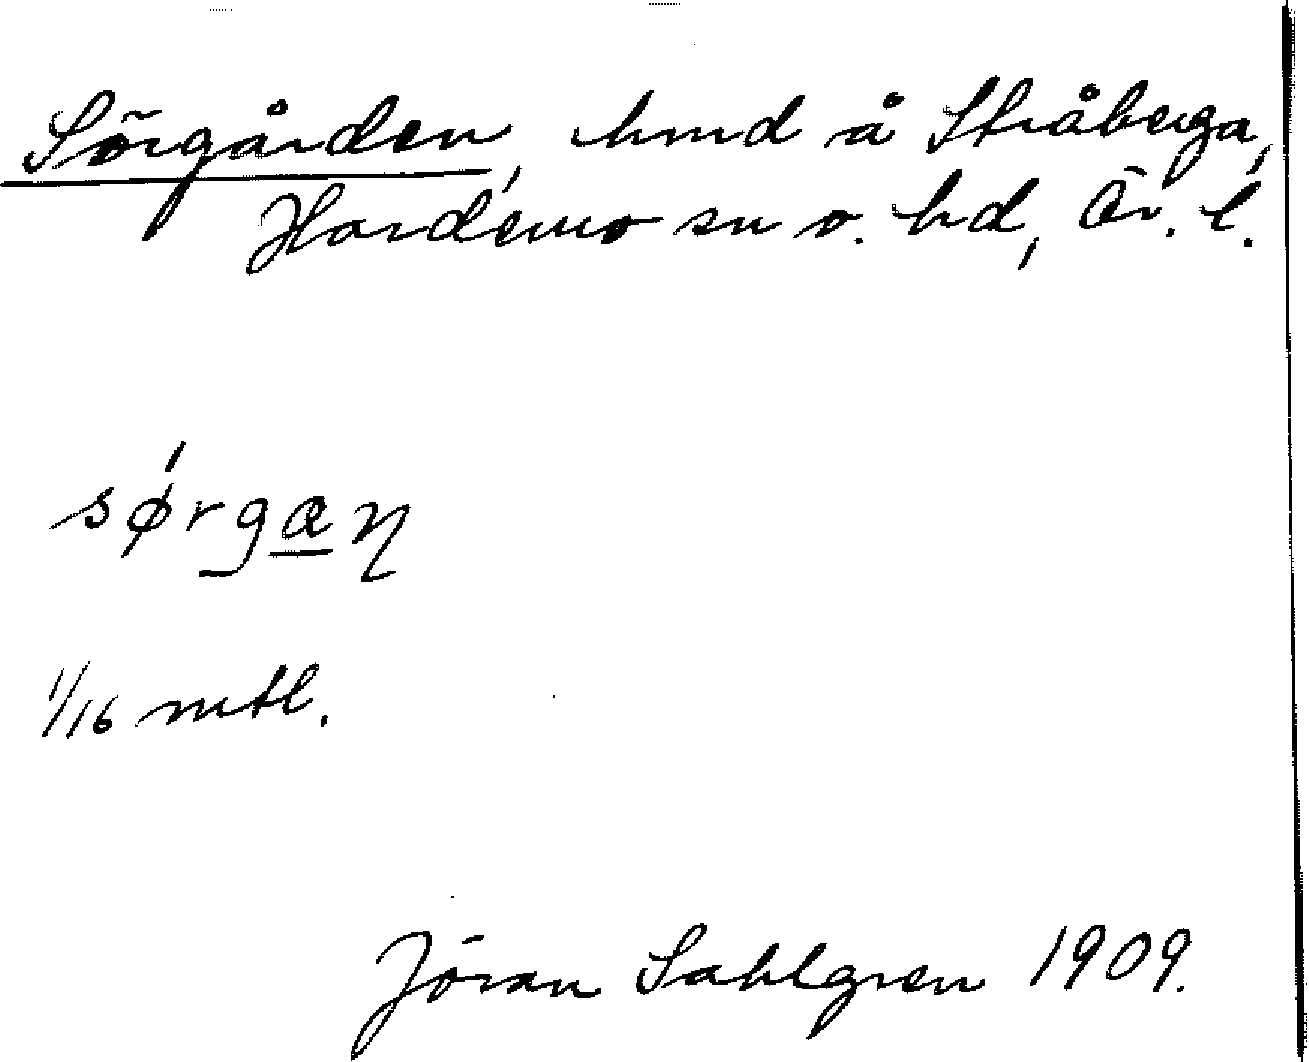 Sörgården, hmd å Stråberga,
Hardemo sn o. hd, Ör. l.
sǿrgaɳ
1/16 mtl.
Jöran Sahlgren 1909.